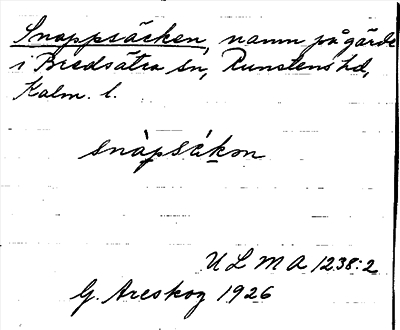 Snappsäcken, namn på gärde
i Bredsätra sn, Runstens hd,
Kalm. l.
snàpsák̲ən
ULMA 1238:2
G. Areskog 1926